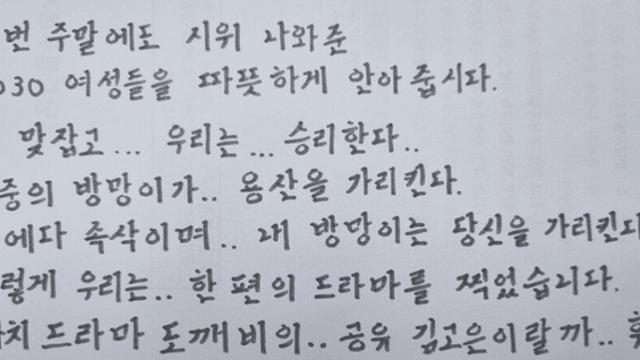 번 주말에도 시위 나와준
030 여성들을 따뜻하게 안아줍시다.
맞잡고... 우리는... 승리한다..
중의 방망이가.. 용산을 가리킨다.
에다 족삭이며.. 내 방망이는 당신을 가리킨다
렇게 우리는.. 한 편의 드라마를 찍었습니다.
치 드라마 도깨비의.. 공유 김고은이랄까..